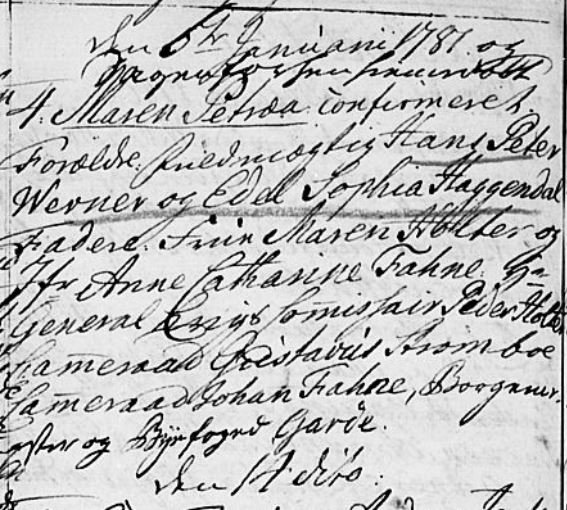 den 6te Januarii 1781 og
4. Maren Petræa confirmeret.
Forældre: Hans Peter
Werner og Edel Sophia Haggendal
Faddere: Fruv Maren Holter og
Jfr Anne Catharine Fahne. Hr
General Krigs Com̄issair Peder Holter
Cam̄eraad Gustavus Strömboe
Cam̄eraad Johan Fahne, Borgeme-
ster og Byefoged Garde.
den 14 dito.